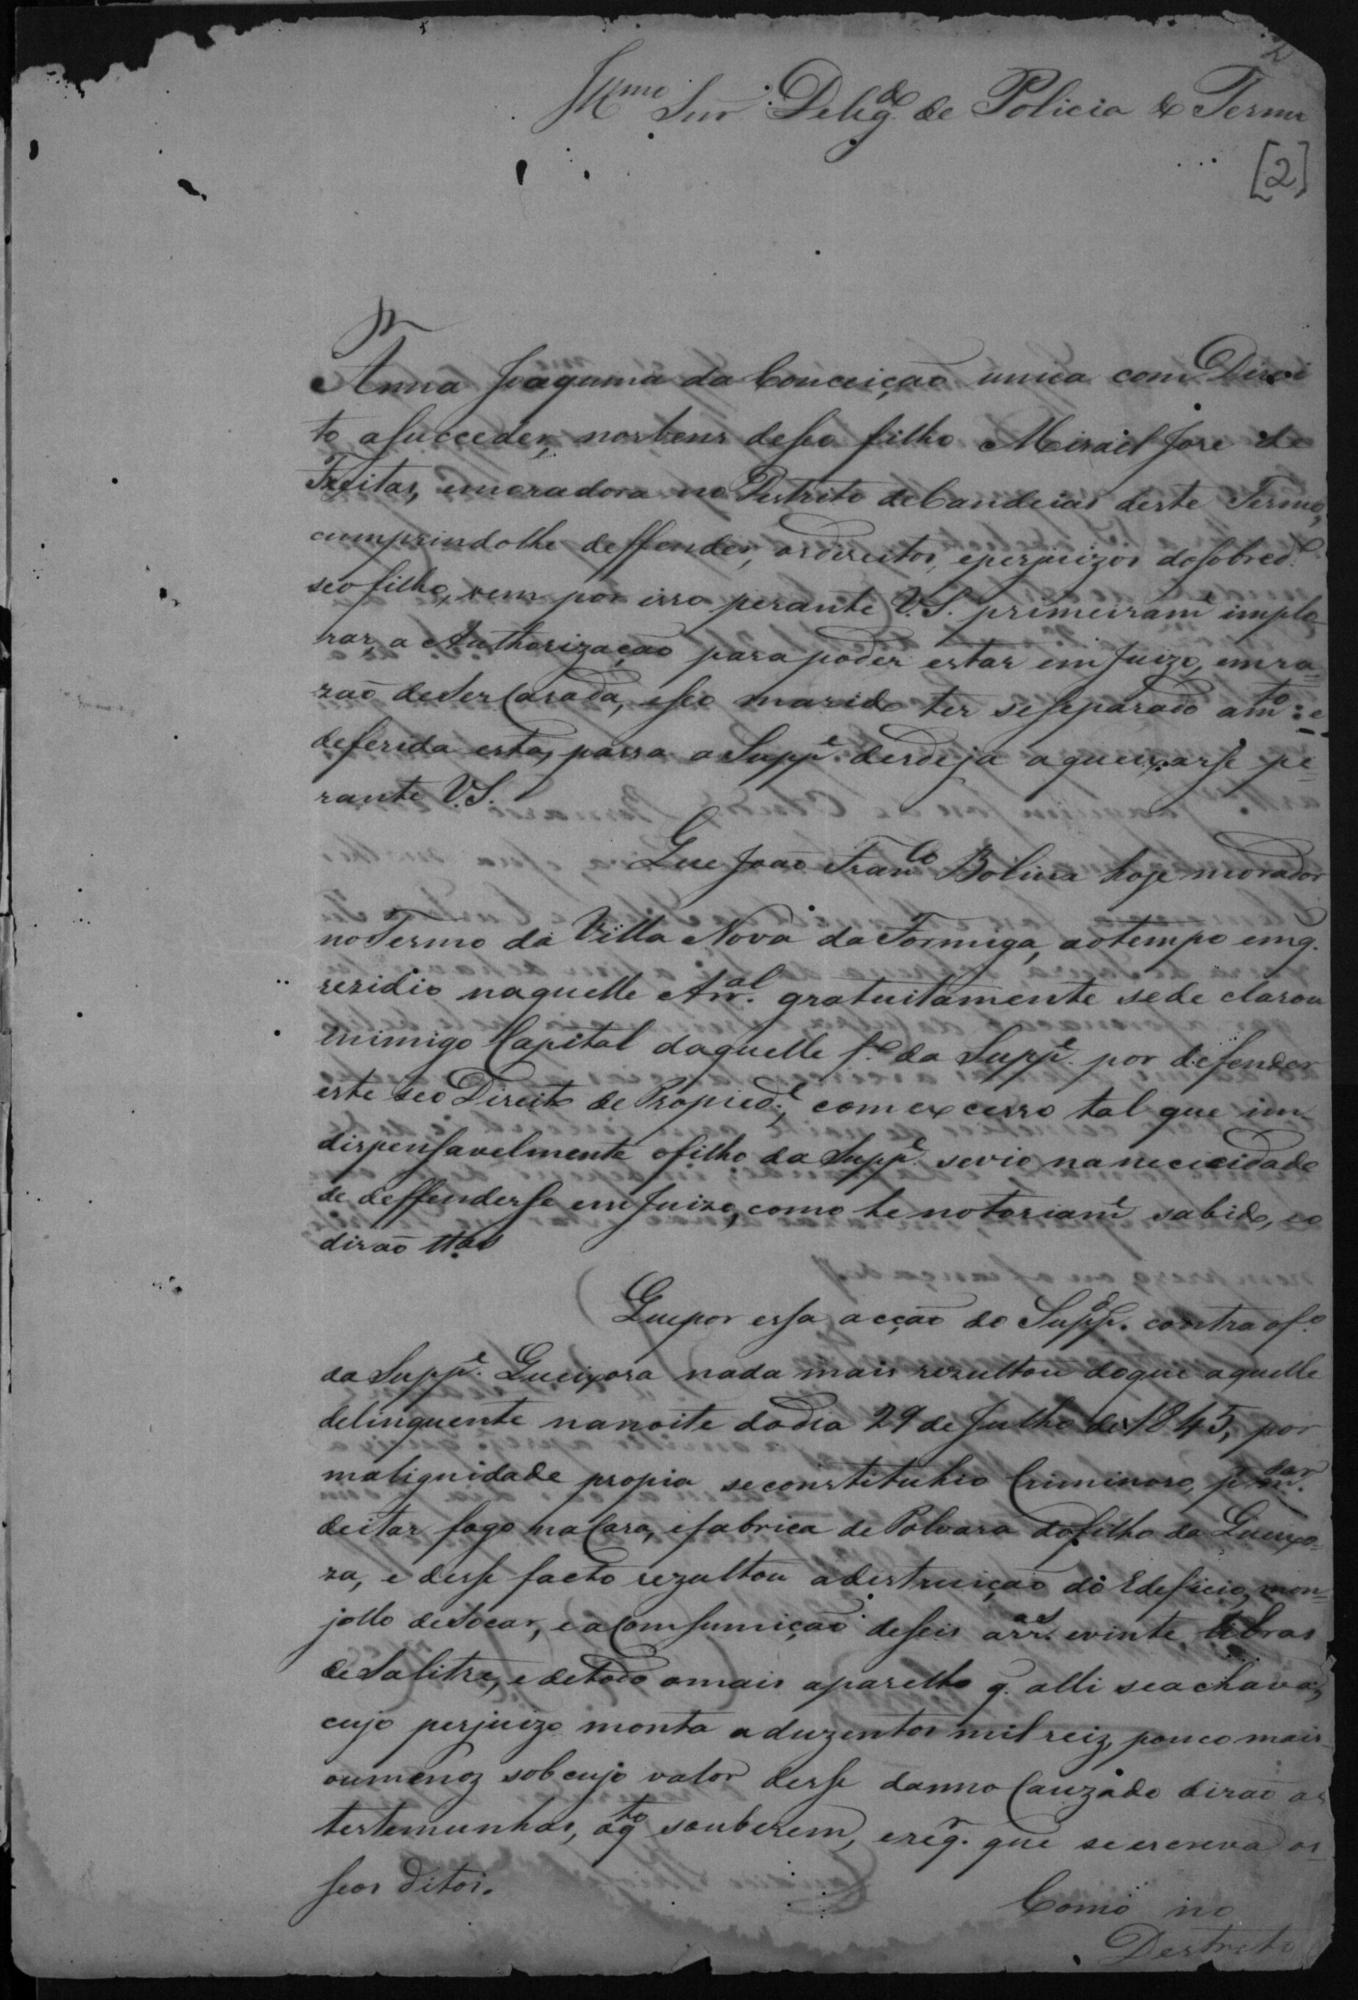 Illmo Snr Delegdo de Policia do Termo
2
[2]
Anna Joaquina da Conceição unica com Direi
to asucceder, nosbens deseo filho Misael Jose de
Freitas, emoradora no Destrito deCandeias deste Termo,
cumprindolhe deffender, osdireitos, eperjuizos dosobredo
seofilho, vem por isso perante V.S. primeiramte implo
rar, a Authorização parapoder estar emJuizo, emra=
zaõ deSerCasada, eseo marido ter seseparado amto: e
deferida esta, passa aSuppe. desdeja aqueixarse pe=
rante V.S.
Que Joaõ Franco Bolina hoje morador
noTermo da Villa Nova daFormiga, aotempo emq.
rezidio naquelle Arral. gratuitamente sede clarou
inimigo Capital daquelle fo. da Suppe. por defender
este seo Direito de Propiede., comexcesso tal que in
dispensavelmente ofilho da Suppe. sevio nanececidade
de deffenderse emJuizo, como he notoriamte sabido, eo
dirão ttas
Quepor essa acção do Suppdo. contra ofo.
da Suppe. Queixosa nada mais rezultou doque aquelle
delinquente nanoite dodia 29 de Julho de 1845, por
malignidade propia seconstituhio Criminoso, p. mdar.
deitar fogo naCasa, efabrica de Polvara dofilho da Queixo=
za, e desse facto rezultou adestruiçaõ do Edeficio, mon=
jollo desocar, e aComsumiçaõ deseis arras. evinte libras
deSalitre, e detodo omais aparelho q. alli seachava,
cujo perjuizo monta aduzentos mil reiz, pouco mais
oumenoz sobcujo valor desse danno Cauzado dirão as
testemunhas, oqto souberem, ereqr. que seescreva os
seos ditos.
Como no
Destrito